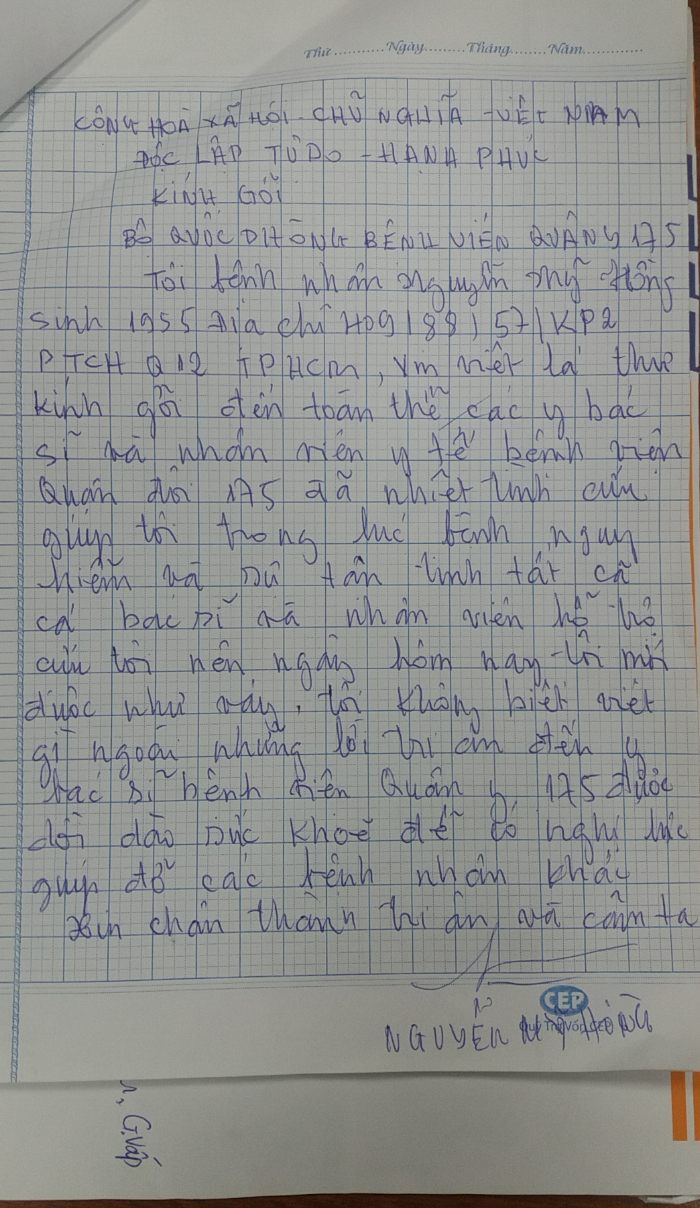 Thứ.............Ngày.........Tháng.........Năm...............
CÔNG HOÀ XÃ HÔI CHŨ NGHIÃ - VIÊT NAM
ĐỘC LẬP TỰ DO - HẠNH PHÚC
KÍNH GỐI
BÔ QUỐC PHÒNG BÊNH VIÊN QUÂN Y 175
Tôi bênh nhân Nguyễn Mỹ Hồng
Sinh 1955 Địa chỉ H09/88/57/KP2
PTCH Q12 TPHCM, xin viết lá thư
kính gỡi đến toàn thể các y bác
sĩ và nhân viên y tế bênh viên
Quân đôi 175 đã nhiệt tình cứu
giúp tôi trong lúc bênh nguy
hiểm và sư tân tình tất cã
cá bác sĩ và nhân viên hổ trợ
cứu tôi nên ngày hôm nay tôi mới
được như vây, tôi không biết viết
gì ngoài những lời tri ân đến y
bác sĩ bênh viên Quân y 175 được
dồi dào sức khoẽ để có nghị lực
giúp đỡ các bênh nhân khác
xin chân thành tri ân và cãm tạ
CEP
NGUYỄN MỸ HỒNG
n, G.Vấp